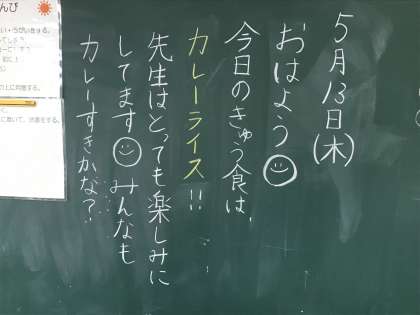 5月13日(木)
おはよう
今日のきゅう食は、
カレーライス!!
先生はとっても楽しみに
してます みんなも
カレーすきかな?